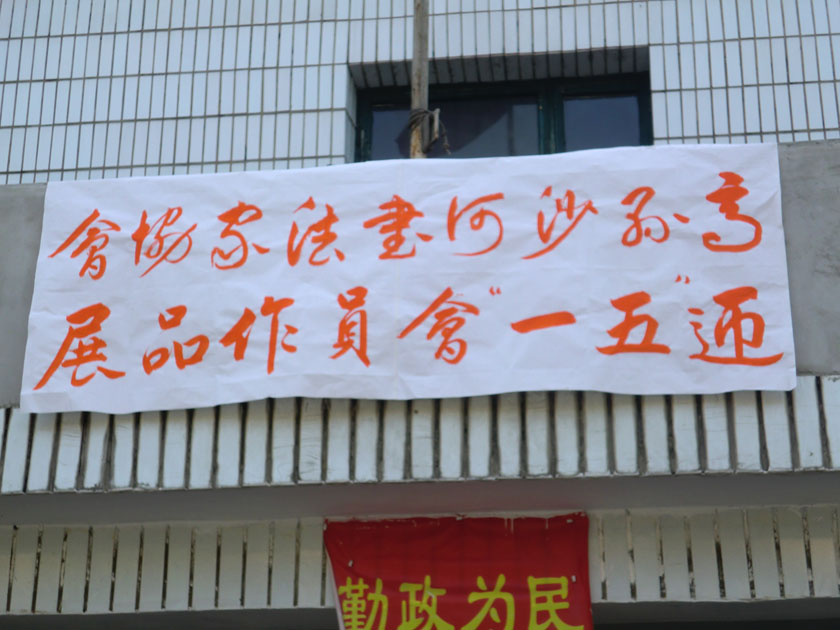 高孙沙河書法家協會
迎"五一"會員作品展
勤政为民